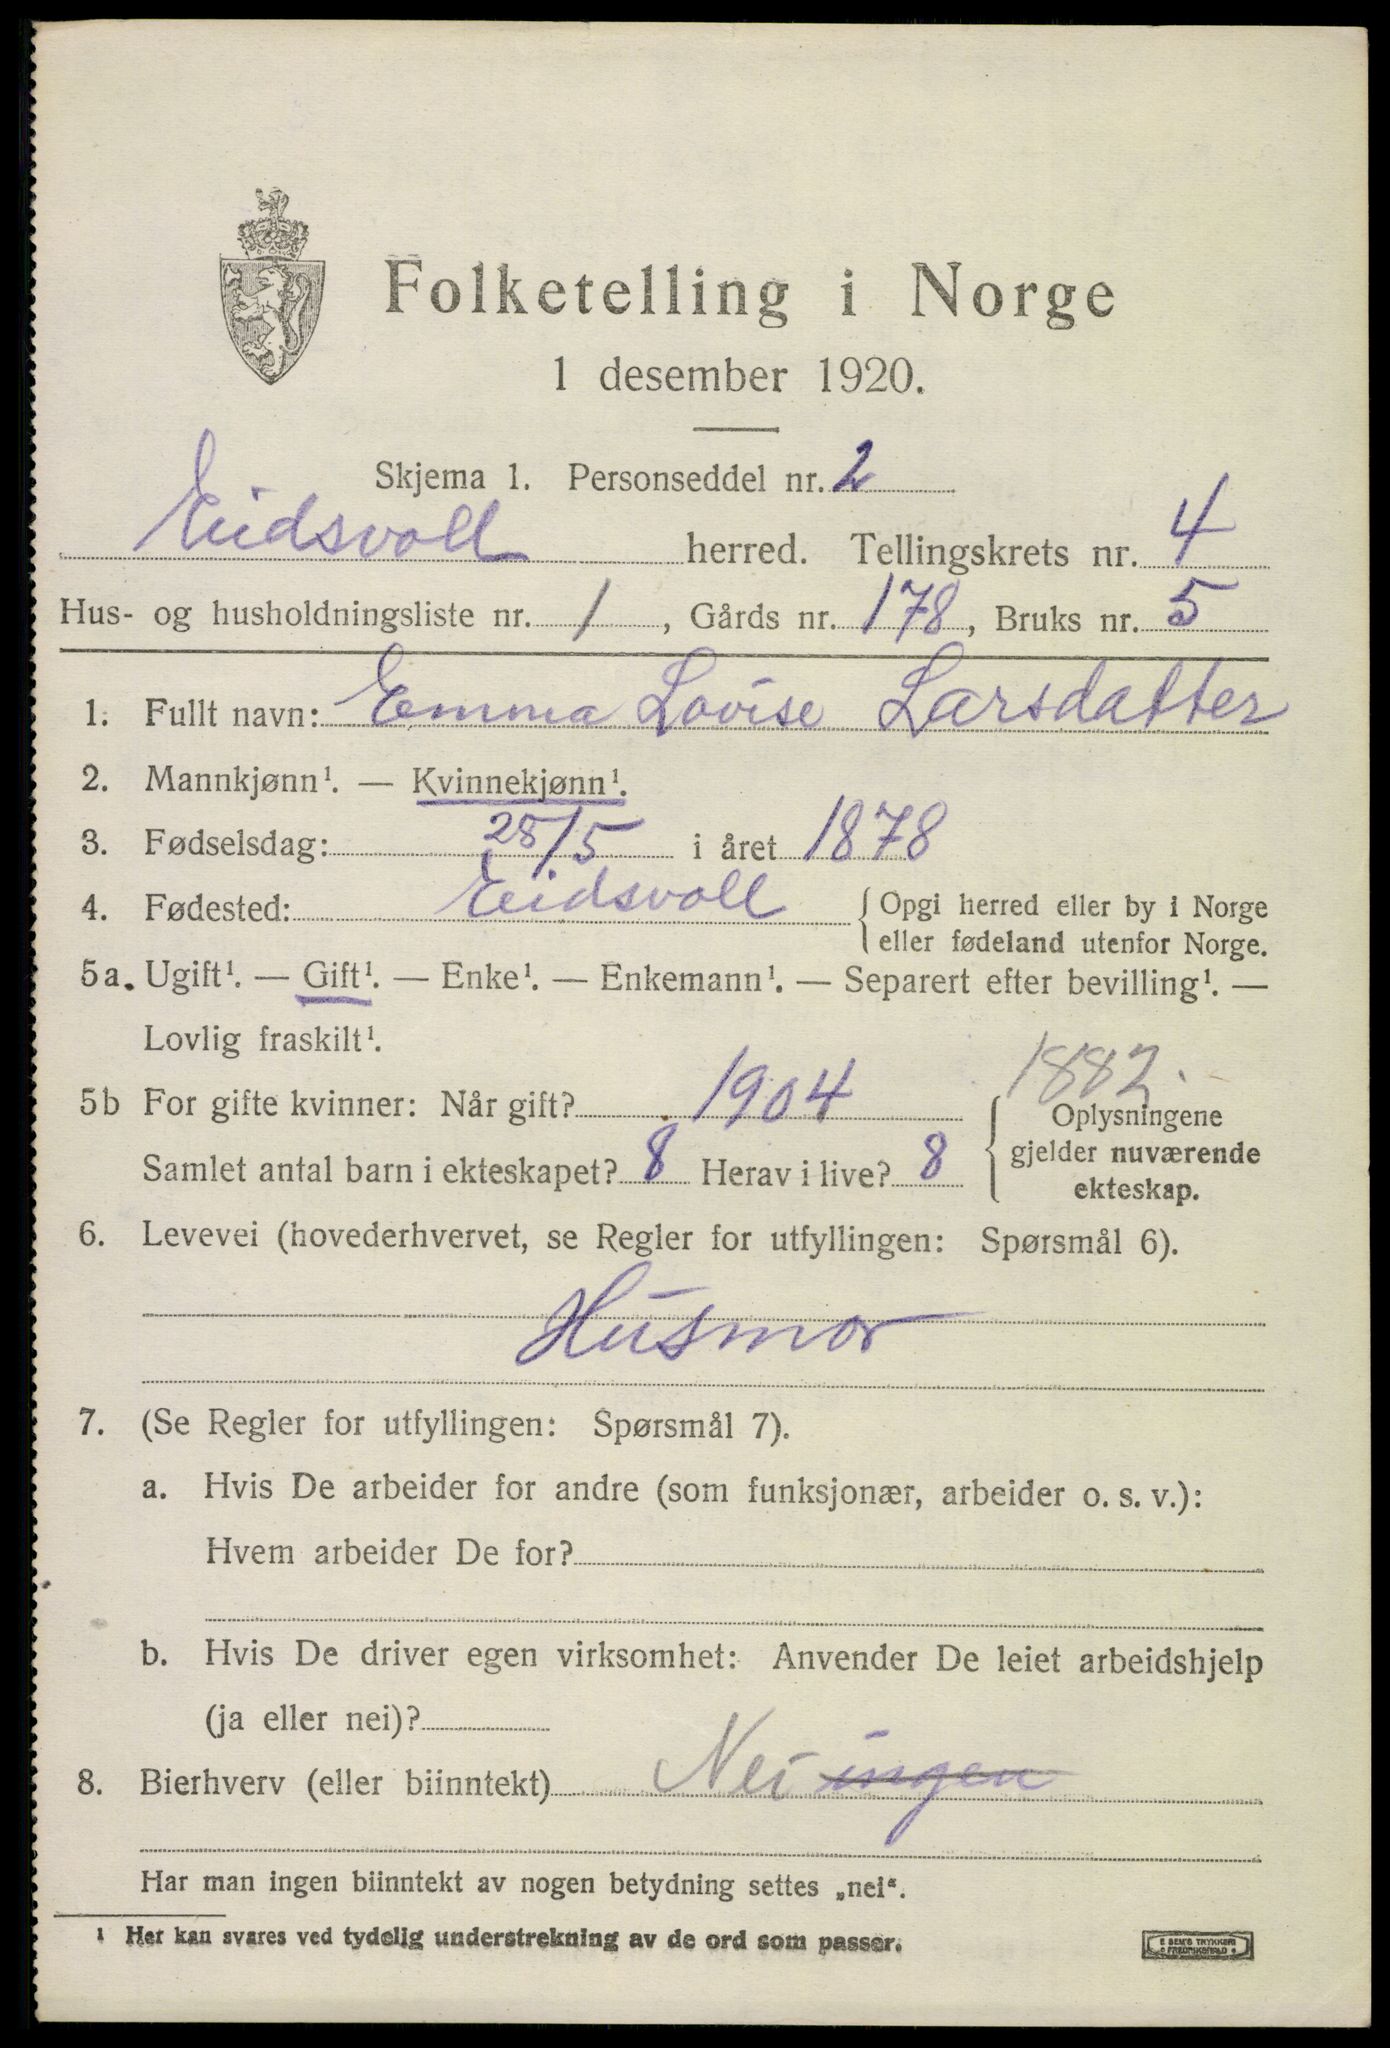 Folketelling i Norge
1 desember 1920.
Skjema 1. Personseddel nr. 2
Eidsvoll herred. Tellingskrets nr. 4
Hus- og husholdningsliste nr. 1, Gårds nr. 178, Bruks nr. 5
1. Fullt navn: Emma Lovise Larsdatter
2. Mannkjønn¹. — Kvinnekjønn¹.
3. Fødselsdag: 28/5 i året 1878
4. Fødested: Eidsvoll {Opgi herred eller by i Norge
eller fødeland utenfor Norge.
5a. Ugift¹. — Gift¹. — Enke¹. — Enkemann¹. — Separert efter bevilling¹. —
Lovlig fraskilt¹.
1882.
5b For gifte kvinner: Når gift? 1904 {Oplysningene
gjelder nuværende
ekteskap.
Samlet antal barn i ekteskapet? 8 Herav i live? 8
6. Levevei (hovederhvervet, se Regler for utfyllingen: Spørsmål 6).
Husmor
7. (Se Regler for utfyllingen: Spørsmål 7).
a. Hvis De arbeider for andre (som funksjonær, arbeider o. s. v.):
Hvem arbeider De for?
b. Hvis De driver egen virksomhet: Anvender De leiet arbeidshjelp
(ja eller nei)?
8. Bierhverv (eller biinntekt) Nei ingen
Har man ingen biinntekt av nogen betydning settes „nei“.
¹ Her kan svares ved tydelig understrekning av de ord som passer.
E SEM'S TRYKKERI
FREDRIKSHALD